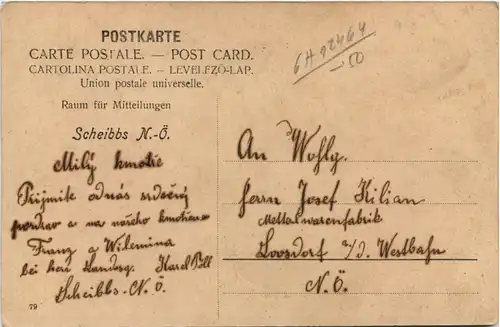 POSTKARTE
CARTE POSTALE. — POST CARD.
CARTOLINA POSTALE. — LEVELEZÖ-LAP.
Union postale universelle.
Raum für Mitteilungen
6H 92464
-.50
Scheibbs N.-Ö.
Milý kmotře
Přijmite od nás srdečný
pozdrav a na našeho kmotřence
Franz a Wilemina
bei Karel Pöll
Scheibbs. N.Ö.
79
An Wohlg.
Herrn Josef Kilian
Mettalwarenfabrik
Loosdorf a/d. Westbahn
N.Ö.